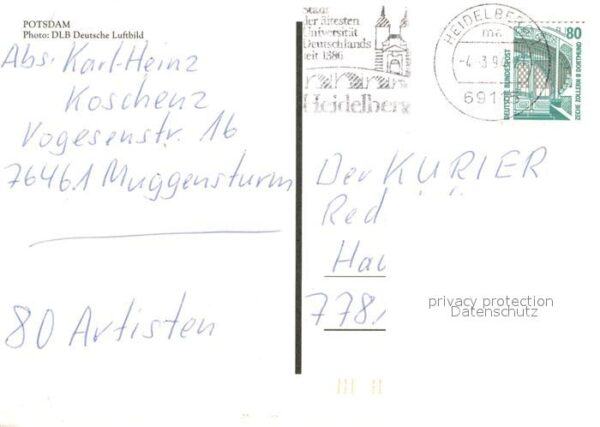 POTSDAM
Photo: DLB Deutsche Luftbild
Abs. Karl-Heinz
Koschenz
Vogesenstr. 16
76461 Muggensturm
80 Artisten
Stadt
der ältesten
Universität
Deutschlands
seit 1386
Heidelberg
HEIDELBE
ma
-4.-3.9
6911
80
DEUTSCHE BUNDESPOST
ZECHE ZOLLERN II DORTMUND
Der KURIER
Red
Hau
778
privacy protection
Datenschutz